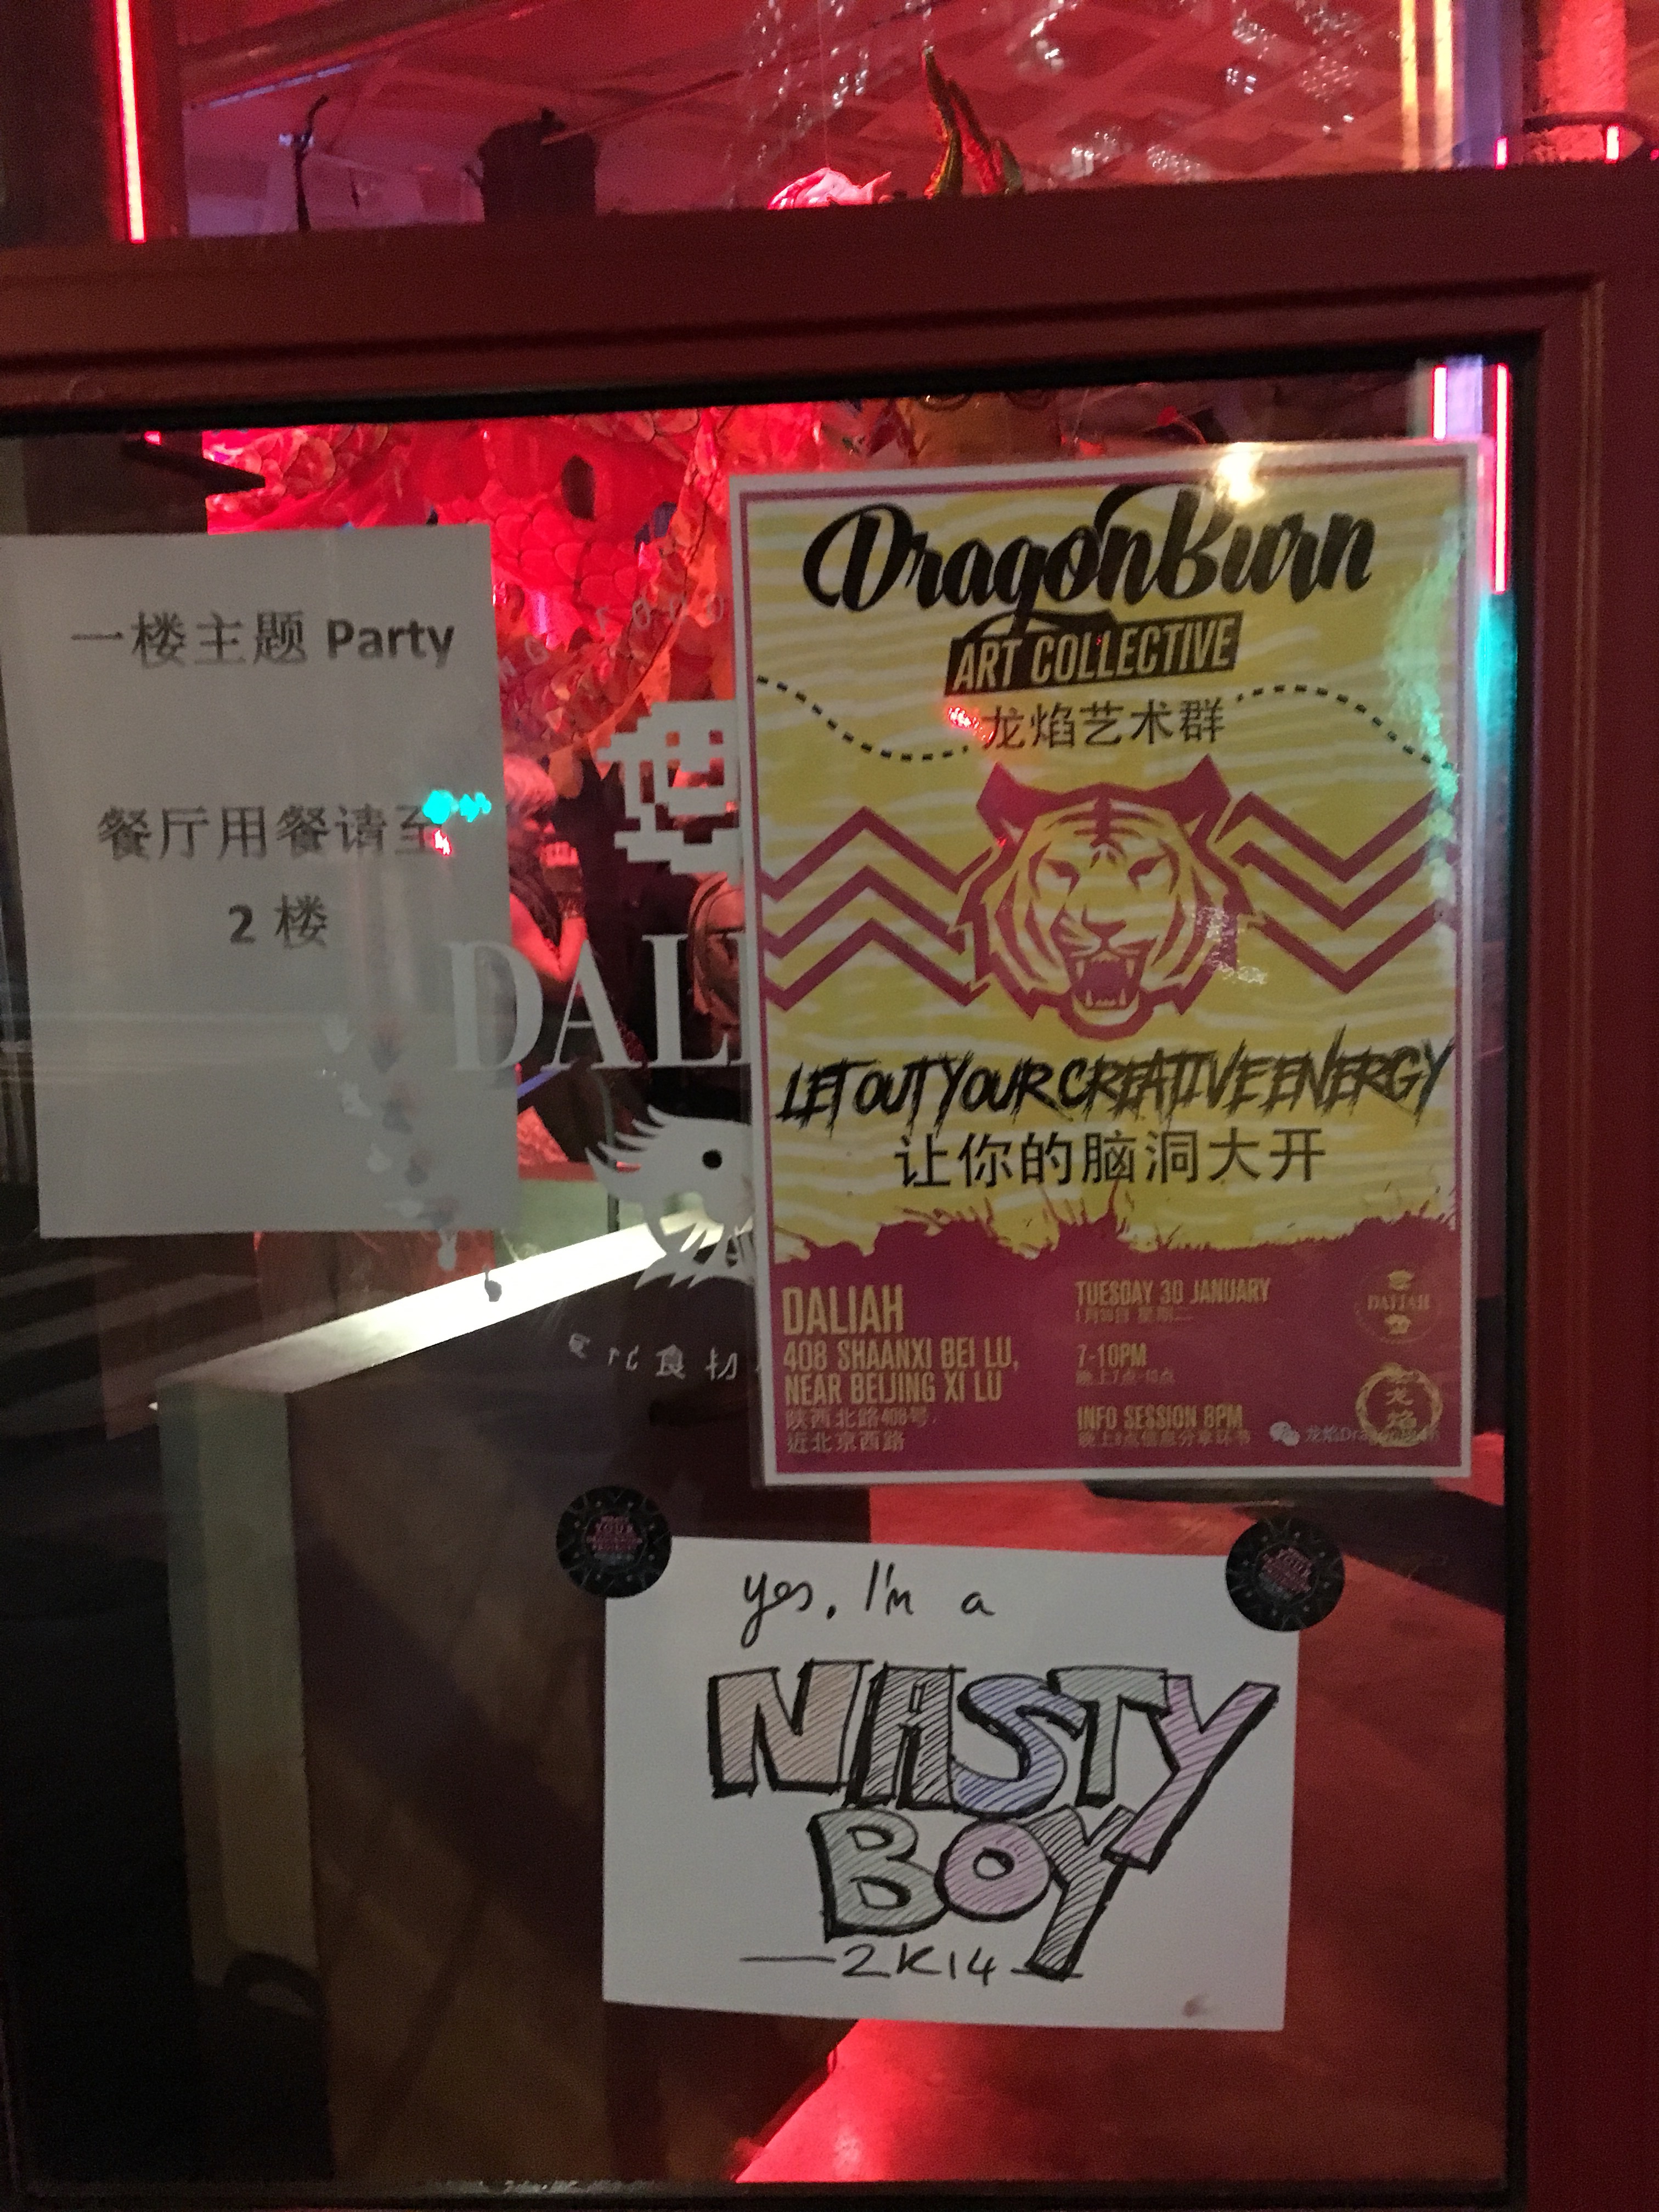 一楼主题 Party
餐厅用餐请至
2 楼
DALI
DragonBurn
ART COLLECTIVE
龙焰艺术群
LET OUT YOUR CREATIVE ENERGY
让你的脑洞大开
DALIAH
408 SHAANXI BEI LU,
NEAR BEIJING XI LU
陕西北路408号,
近北京西路
TUESDAY 30 JANUARY
1月30日 星期二
7-10PM
晚上7点-10点
INFO SESSION 8PM
晚上8点信息分享环节
DALIAH
龙焰
龙焰DragonBurn
yes. I'm a
NASTY
BOY
2K14